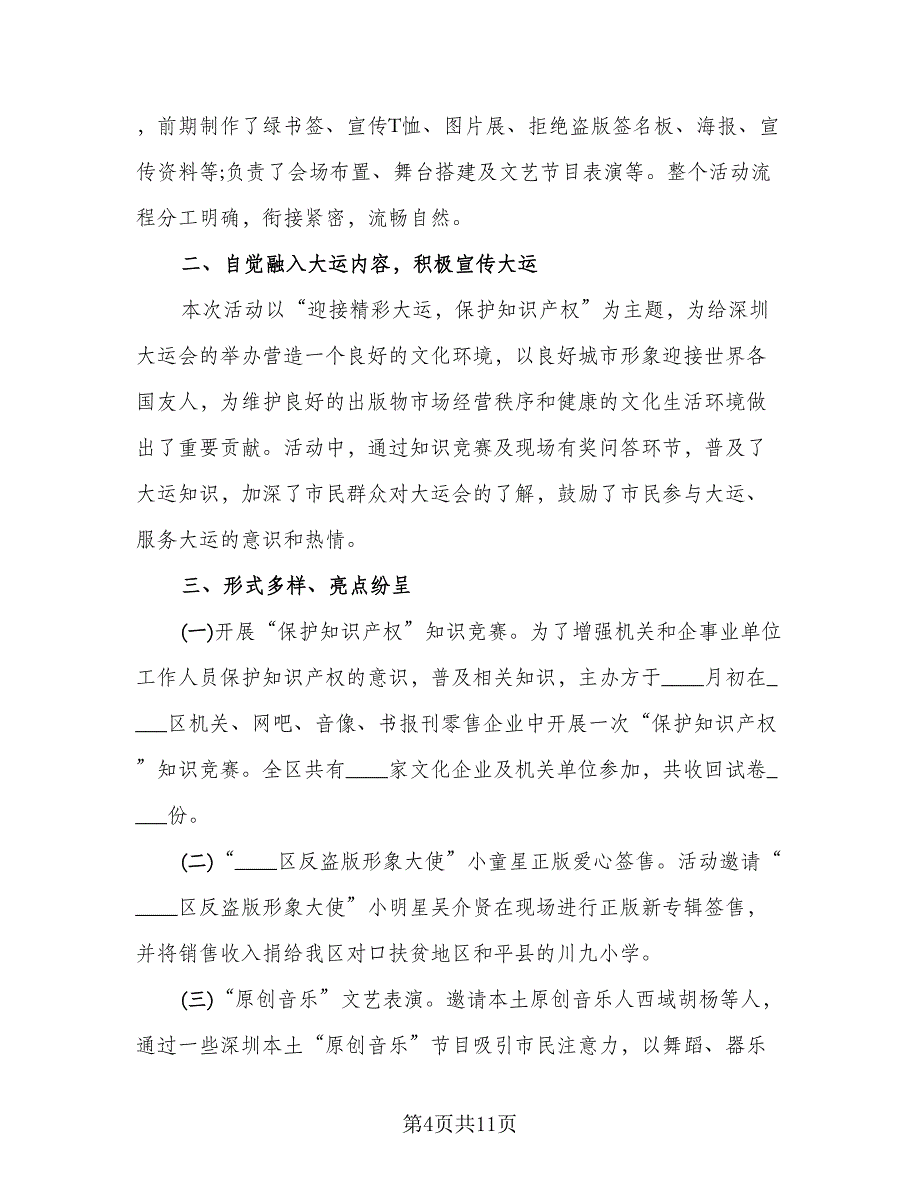 ，前期制作了绿书签、宣传T恤、图片展、拒绝盗版签名板、海报、宣
传资料等;负责了会场布置、舞台搭建及文艺节目表演等。整个活动流
程分工明确，衔接紧密，流畅自然。
二、自觉融入大运内容，积极宣传大运
本次活动以“迎接精彩大运，保护知识产权”为主题，为给深圳
大运会的举办营造一个良好的文化环境，以良好城市形象迎接世界各
国友人，为维护良好的出版物市场经营秩序和健康的文化生活环境做
出了重要贡献。活动中，通过知识竞赛及现场有奖问答环节，普及了
大运知识，加深了市民群众对大运会的了解，鼓励了市民参与大运、
服务大运的意识和热情。
三、形式多样、亮点纷呈
(一)开展“保护知识产权”知识竞赛。为了增强机关和企事业单位
工作人员保护知识产权的意识，普及相关知识，主办方于____月初在_
___区机关、网吧、音像、书报刊零售企业中开展一次“保护知识产权
”知识竞赛。全区共有____家文化企业及机关单位参加，共收回试卷_
___份。
(二)“____区反盗版形象大使”小童星正版爱心签售。活动邀请“
____区反盗版形象大使”小明星吴介贤在现场进行正版新专辑签售，
并将销售收入捐给我区对口扶贫地区和平县的川九小学。
(三)“原创音乐”文艺表演。邀请本土原创音乐人西域胡杨等人，
通过一些深圳本土“原创音乐”节目吸引市民注意力，以舞蹈、器乐
第4页共11页